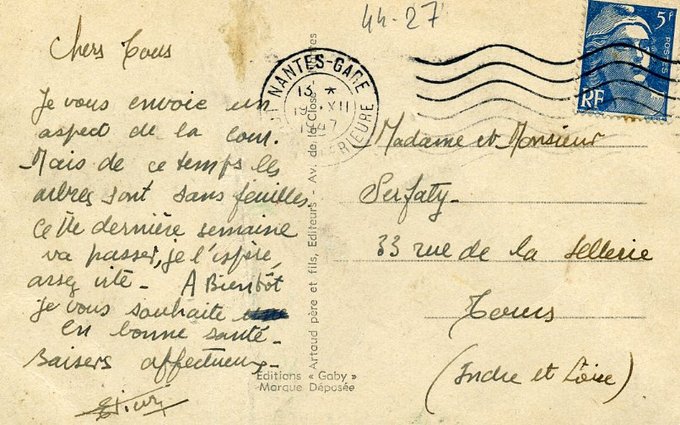 44-27
Chers Tous
Je vous envoie un
aspect de la cour.
Mais de ce temps les
arbres sont sans feuilles
cette dernière semaine
va passer, je l'espère,
assez vite - A Bientôt
je vous souhaite
en bonne santé -
Baisers affectueux -
NANTES-GARE
13 *
19 XII
1947
INFERIEURE
5F
POSTES
RF
Madame et Monsieur
Serfaty -
33 rue de la Sellerie
Tours
(Indre et Loire)
Artaud père et fils, Editeurs - Av. de la Close
Editions « Gaby »
Marque Déposée